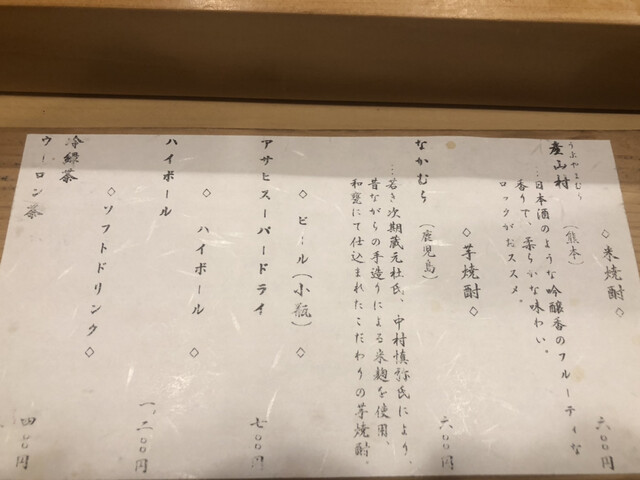 ◇米焼酎◇
うぶやまむら
産山村(熊本)
六〇〇円
…日本酒のような吟醸香のフルーティな
香りで、柔らかな味わい。
ロックがおススメ。
◇芋焼酎◇
なかむら(鹿児島)
六〇〇円
…若き次期蔵元杜氏、中村慎弥氏により、
昔ながらの手造りによる米麹を使用、
和甕にて仕込まれたこだわりの芋焼酎。
◇ビール(小瓶)◇
アサヒスーパードライ
七〇〇円
◇ハイボール◇
ハイボール
一、二〇〇円
◇ソフトドリンク◇
冷緑茶
四〇〇円
ウーロン茶